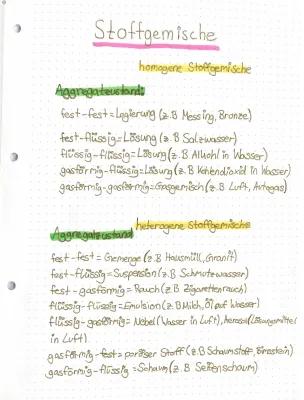 Stoffgemische
homogene Stoffgemische
Aggregatzustand:
fest-fest=Legierung (z.B Messing, Bronze)
fest-flüssig=Lösung (z.B Salzwasser)
flüssig-flüssig=Lösung (z.B Alkohol in Wasser)
gasförmig-flüssig=Lösung (z.B Kohlendioxid in Wasser)
gasförmig-gasförmig=Gasgemisch (z.B Luft, Autogas)
heterogene Stoffgemische
Aggregatzustand
fest-fest= Gemenge (z.B Hausmüll, Granit)
fest-flüssig=Suspension (z.B Schmutzwasser)
fest-gasförmig= Rauch (z.B Zigarettenrauch)
flüssig-flüssig=Emulsion (z.B Milch, Öl auf Wasser)
flüssig-gasförmig= Nebel (Wasser in Luft), Aerosol (Lösungsmittel
in Luft)
gasförmig-fest= poröser Stoff (z.B Schaumstoff, Bimsstein)
gasförmig-flüssig=Schaum (z.B Seifenschaum)